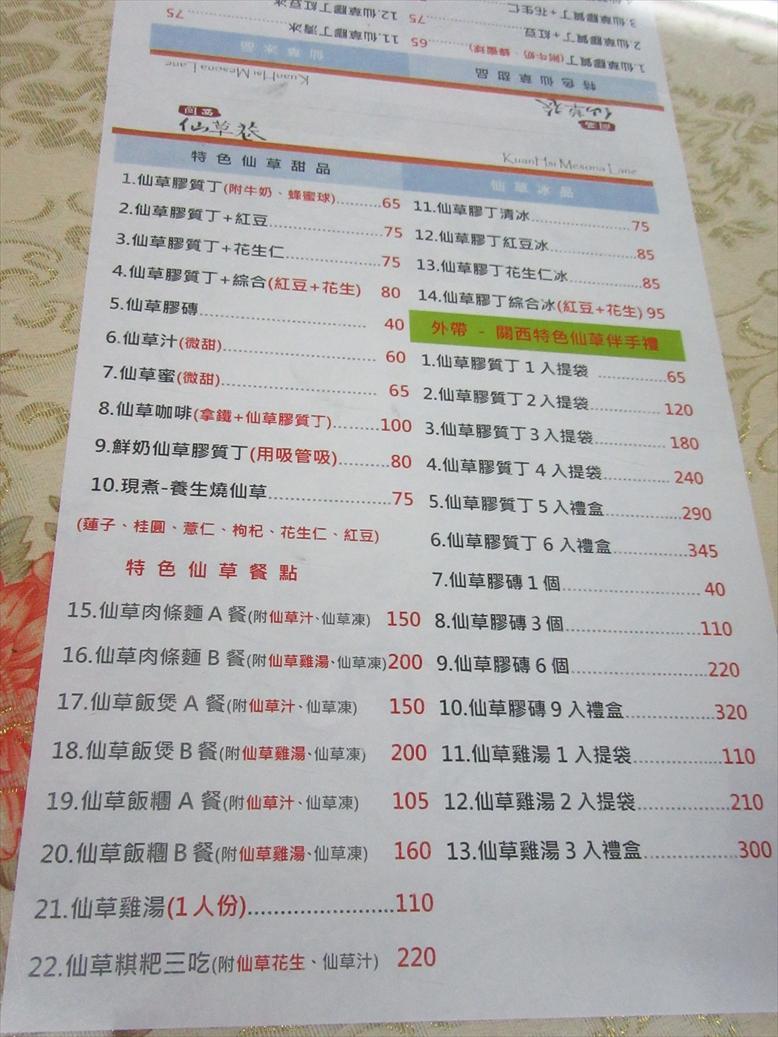 3.仙草膠質丁+花生仁
2.仙草膠質丁+紅豆 75
1.仙草膠質丁(附牛奶、蜂蜜球) 65
特色仙草甜品
12.仙草膠丁紅豆冰
11.仙草膠丁清冰 75
仙草冰品
KuanHsi Mesona Lane
關西
仙草巷
關西
仙草巷
KuanHsi Mesona Lane
特色仙草甜品
1.仙草膠質丁(附牛奶、蜂蜜球).........65
2.仙草膠質丁+紅豆........................75
3.仙草膠質丁+花生仁.....................75
4.仙草膠質丁+綜合(紅豆+花生) 80
5.仙草膠磚................................ 40
6.仙草汁(微甜)............................ 60
7.仙草蜜(微甜)............................ 65
8.仙草咖啡(拿鐵+仙草膠質丁).........100
9.鮮奶仙草膠質丁(用吸管吸).........80
10.現煮-養生燒仙草.....................75
(蓮子、桂圓、薏仁、枸杞、花生仁、紅豆)
特色仙草餐點
15.仙草肉條麵 A 餐(附仙草汁、仙草凍) 150
16.仙草肉條麵 B 餐(附仙草雞湯、仙草凍)200
17.仙草飯煲 A 餐(附仙草汁、仙草凍) 150
18.仙草飯煲 B 餐(附仙草雞湯、仙草凍) 200
19.仙草飯糰 A 餐(附仙草汁、仙草凍) 105
20.仙草飯糰 B 餐(附仙草雞湯、仙草凍) 160
21.仙草雞湯(1 人份).......................110
22.仙草粸粑三吃(附仙草花生、仙草汁) 220
仙草冰品
11.仙草膠丁清冰.....................75
12.仙草膠丁紅豆冰..................85
13.仙草膠丁花生仁冰...............85
14.仙草膠丁綜合冰(紅豆+花生) 95
外帶 - 關西特色仙草伴手禮
1.仙草膠質丁 1 入提袋 ............65
2.仙草膠質丁 2 入提袋............ 120
3.仙草膠質丁 3 入提袋............ 180
4.仙草膠質丁 4 入提袋............ 240
5.仙草膠質丁 5 入禮盒............290
6.仙草膠質丁 6 入禮盒............345
7.仙草膠磚 1 個........................ 40
8.仙草膠磚 3 個.......................110
9.仙草膠磚 6 個.......................220
10.仙草膠磚 9 入禮盒...............320
11.仙草雞湯 1 入提袋...............110
12.仙草雞湯 2 入提袋...............210
13.仙草雞湯 3 入禮盒...............300